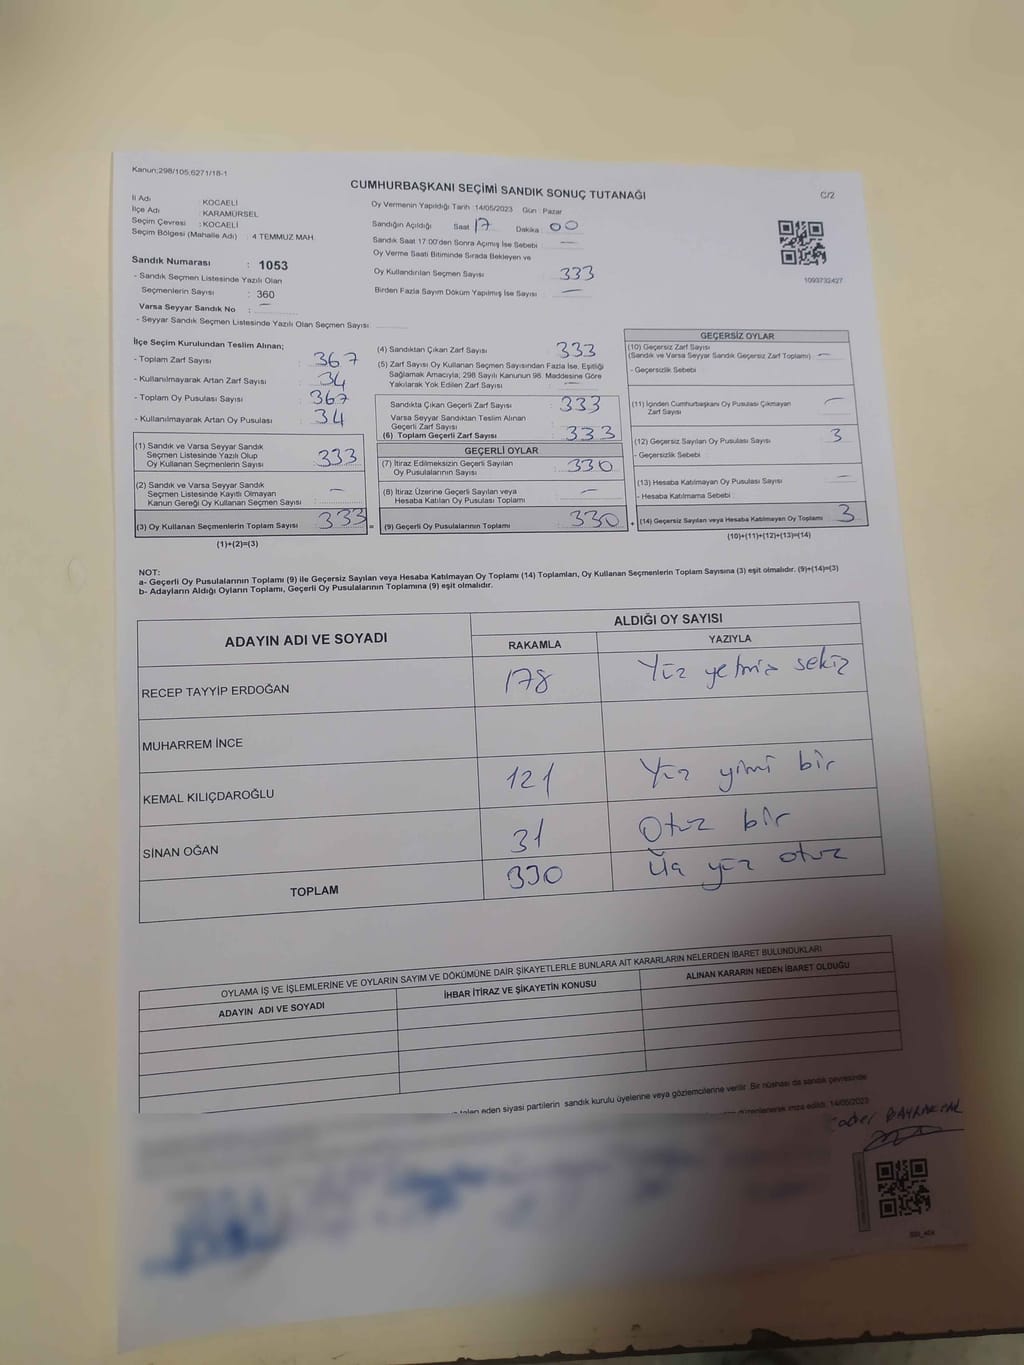 Kanun;298/105,6271/18-1
CUMHURBAŞKANI SEÇİMİ SANDIK SONUÇ TUTANAĞI
C/2
İl Adı : KOCAELİ
İlçe Adı : KARAMÜRSEL
Seçim Çevresi : KOCAELİ
Seçim Bölgesi (Mahalle Adı) : 4 TEMMUZ MAH.
Sandık Numarası : 1053
- Sandık Seçmen Listesinde Yazılı Olan
Seçmenlerin Sayısı : 360
Varsa Seyyar Sandık No : —
- Seyyar Sandık Seçmen Listesinde Yazılı Olan Seçmen Sayısı
Oy Vermenin Yapıldığı Tarih : 14/05/2023 Gün : Pazar
Sandığın Açıldığı Saat 17 Dakika : 00
Sandık Saat 17:00'den Sonra Açımış İse Sebebi —
Oy Verme Saati Bitiminde Sırada Bekleyen ve
Oy Kullandırılan Seçmen Sayısı 333
Birden Fazla Sayım Döküm Yapılmış İse Sayısı —
1093732427
İlçe Seçim Kurulundan Teslim Alınan;
- Toplam Zarf Sayısı : 367
- Kullanılmayarak Artan Zarf Sayısı : 34
- Toplam Oy Pusulası Sayısı : 367
- Kullanılmayarak Artan Oy Pusulası : 34
(1) Sandık ve Varsa Seyyar Sandık
Seçmen Listesinde Yazılı Olup
Oy Kullanan Seçmenlerin Sayısı : 333
(2) Sandık ve Varsa Seyyar Sandık
Seçmen Listesinde Kayıtlı Olmayan
Kanun Gereği Oy Kullanan Seçmen Sayısı : —
(3) Oy Kullanan Seçmenlerin Toplam Sayısı : 333
(1)+(2)=(3)
(4) Sandıktan Çıkan Zarf Sayısı : 333
(5) Zarf Sayısı Oy Kullanan Seçmen Sayısından Fazla İse, Eşitliği
Sağlamak Amacıyla; 298 Sayılı Kanunun 98. Maddesine Göre
Yakılarak Yok Edilen Zarf Sayısı : —
Sandıkta Çıkan Geçerli Zarf Sayısı : 333
Varsa Seyyar Sandıktan Teslim Alınan
Geçerli Zarf Sayısı
(6) Toplam Geçerli Zarf Sayısı : 333
GEÇERLİ OYLAR
(7) İtiraz Edilmeksizin Geçerli Sayılan
Oy Pusulalarının Sayısı : 330
(8) İtiraz Üzerine Geçerli Sayılan veya
Hesaba Katılan Oy Pusulası Toplamı : —
= (9) Geçerli Oy Pusulalarının Toplamı : 330
GEÇERSİZ OYLAR
(10) Geçersiz Zarf Sayısı
(Sandık ve Varsa Seyyar Sandık Geçersiz Zarf Toplamı) —
- Geçersizlik Sebebi
(11) İçinden Cumhurbaşkanı Oy Pusulası Çıkmayan
Zarf Sayısı —
(12) Geçersiz Sayılan Oy Pusulası Sayısı : 3
- Geçersizlik Sebebi
(13) Hesaba Katılmayan Oy Pusulası Sayısı —
- Hesaba Katılmama Sebebi :
+ (14) Geçersiz Sayılan veya Hesaba Katılmayan Oy Toplamı : 3
(10)+(11)+(12)+(13)=(14)
NOT:
a- Geçerli Oy Pusulalarının Toplamı (9) ile Geçersiz Sayılan veya Hesaba Katılmayan Oy Toplamı (14) Toplamları, Oy Kullanan Seçmenlerin Toplam Sayısına (3) eşit olmalıdır. (9)+(14)=(3)
b- Adayların Aldığı Oyların Toplamı, Geçerli Oy Pusulalarının Toplamına (9) eşit olmalıdır.
ADAYIN ADI VE SOYADI
ALDIĞI OY SAYISI
RAKAMLA YAZIYLA
RECEP TAYYİP ERDOĞAN 178 Yüz yetmiş sekiz
MUHARREM İNCE
KEMAL KILIÇDAROĞLU 121 Yüz yimi bir
SİNAN OĞAN 31 Otuz bir
TOPLAM 330 Üç yüz otuz
OYLAMA İŞ VE İŞLEMLERİNE VE OYLARIN SAYIM VE DÖKÜMÜNE DAİR ŞİKAYETLERLE BUNLARA AİT KARARLARIN NELERDEN İBARET BULUNDUKLARI
ADAYIN ADI VE SOYADI
İHBAR İTİRAZ VE ŞİKAYETİN KONUSU
ALINAN KARARIN NEDEN İBARET OLDUĞU
talep eden siyasi partilerin sandık kurulu üyelerine veya gözlemcilerine verilir. Bir nüshası da sandık çevresinde
düzenlenerek imza edildi. 14/05/2023
BAYRAKTAR